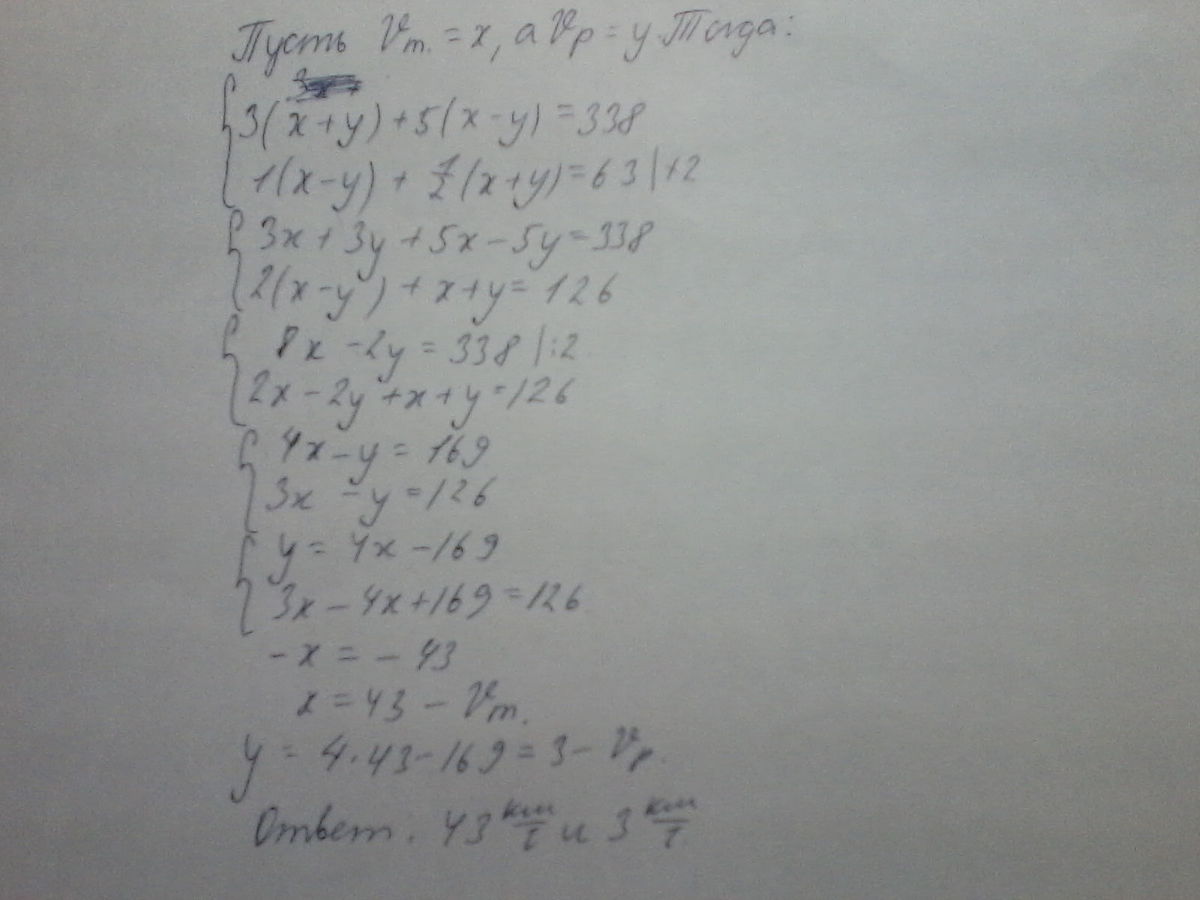 Пусть Vт. = x, а Vр = y. Тогда:
3(x+y)+5(x-y)=338
1(x-y)+ 1/2(x+y)=63|·2
3x+3y+5x-5y=338
2(x-y)+x+y=126
8x-2y=338|:2
2x-2y+x+y=126
4x-y=169
3x-y=126
y=4x-169
3x-4x+169=126
-x=-43
x=43-Vт.
y=4·43-169=3-Vр.
Ответ: 43 км/г и 3 км/г